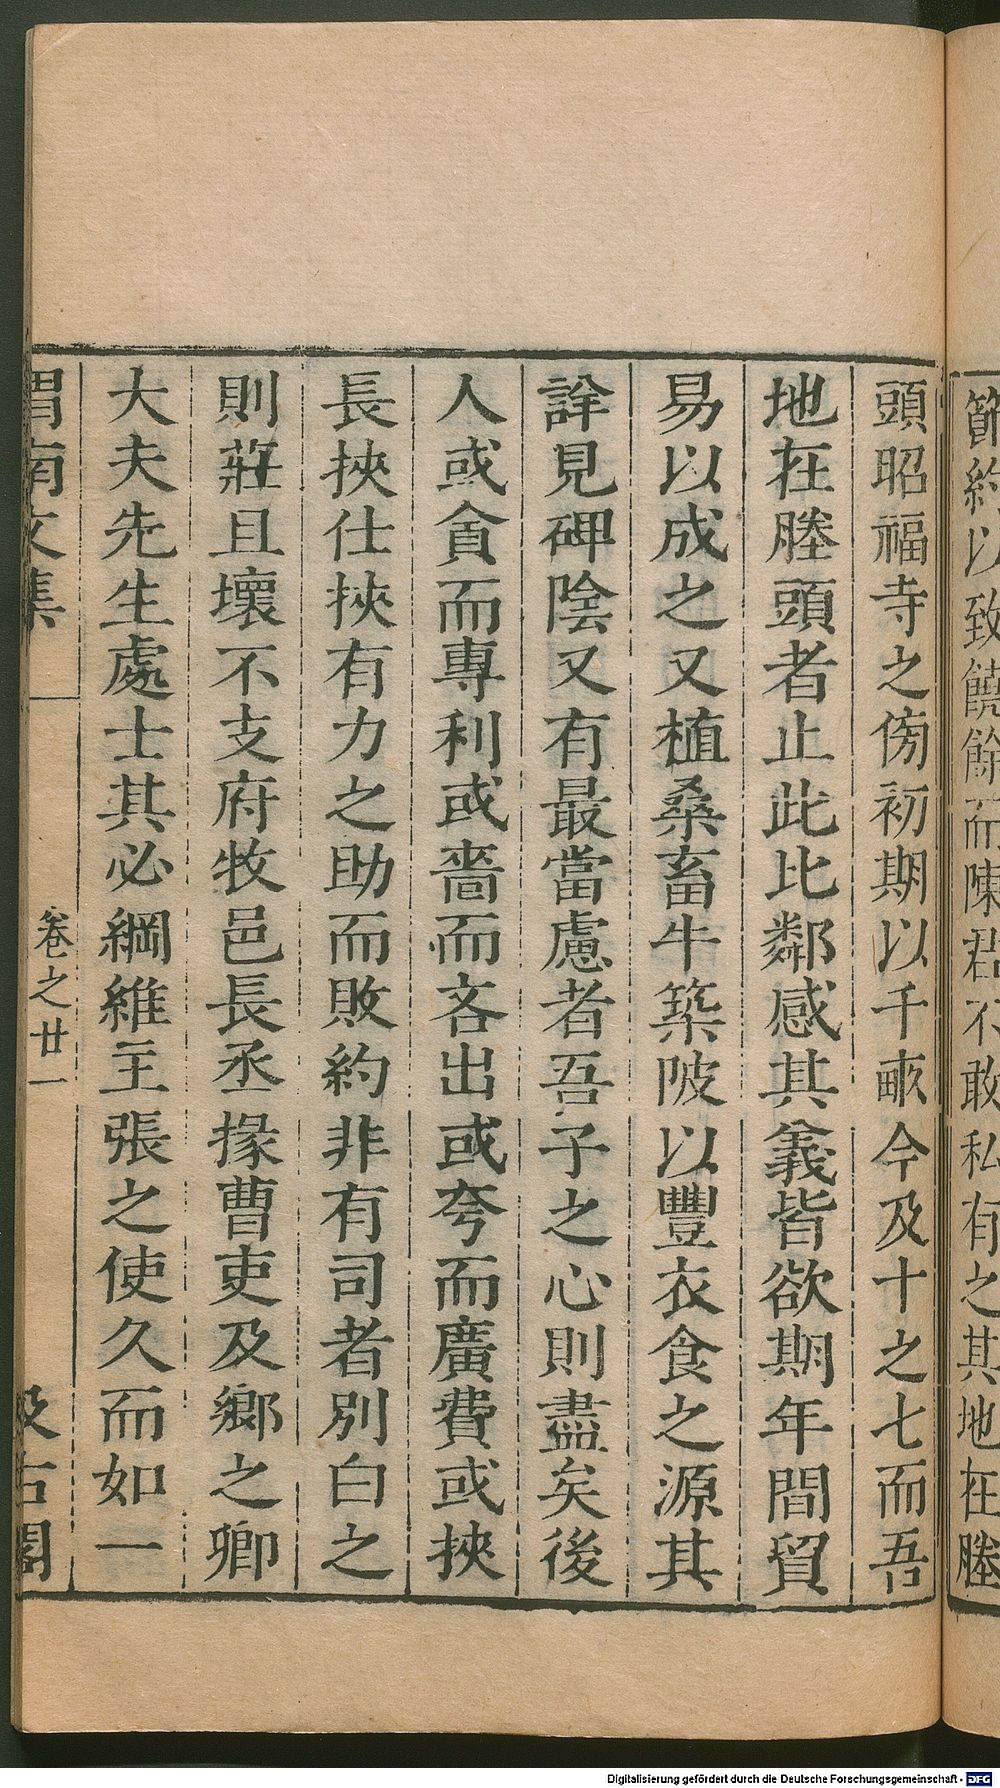 節約以致饒餘而陳君不敢私有之其地在塍
頭昭福寺之傍初期以千畝今及十之七而吾
地在塍頭者止此比鄰感其義皆欲期年間貿
易以成之又植桑畜牛築陂以豐衣食之源其
詳見碑陰又有最當慮者吾子之心則盡矣後
人或貪而專利或嗇而吝出或夸而廣費或挾
長挾仕挾有力之助而敗約非有司者別白之
則莊且壞不支府牧邑長丞掾曹吏及鄉之卿
大夫先生處士其必綱維主張之使久而如一
渭南文集
卷之廿一
汲古閣
Digitalisierung gefördert durch die Deutsche Forschungsgemeinschaft - DFG